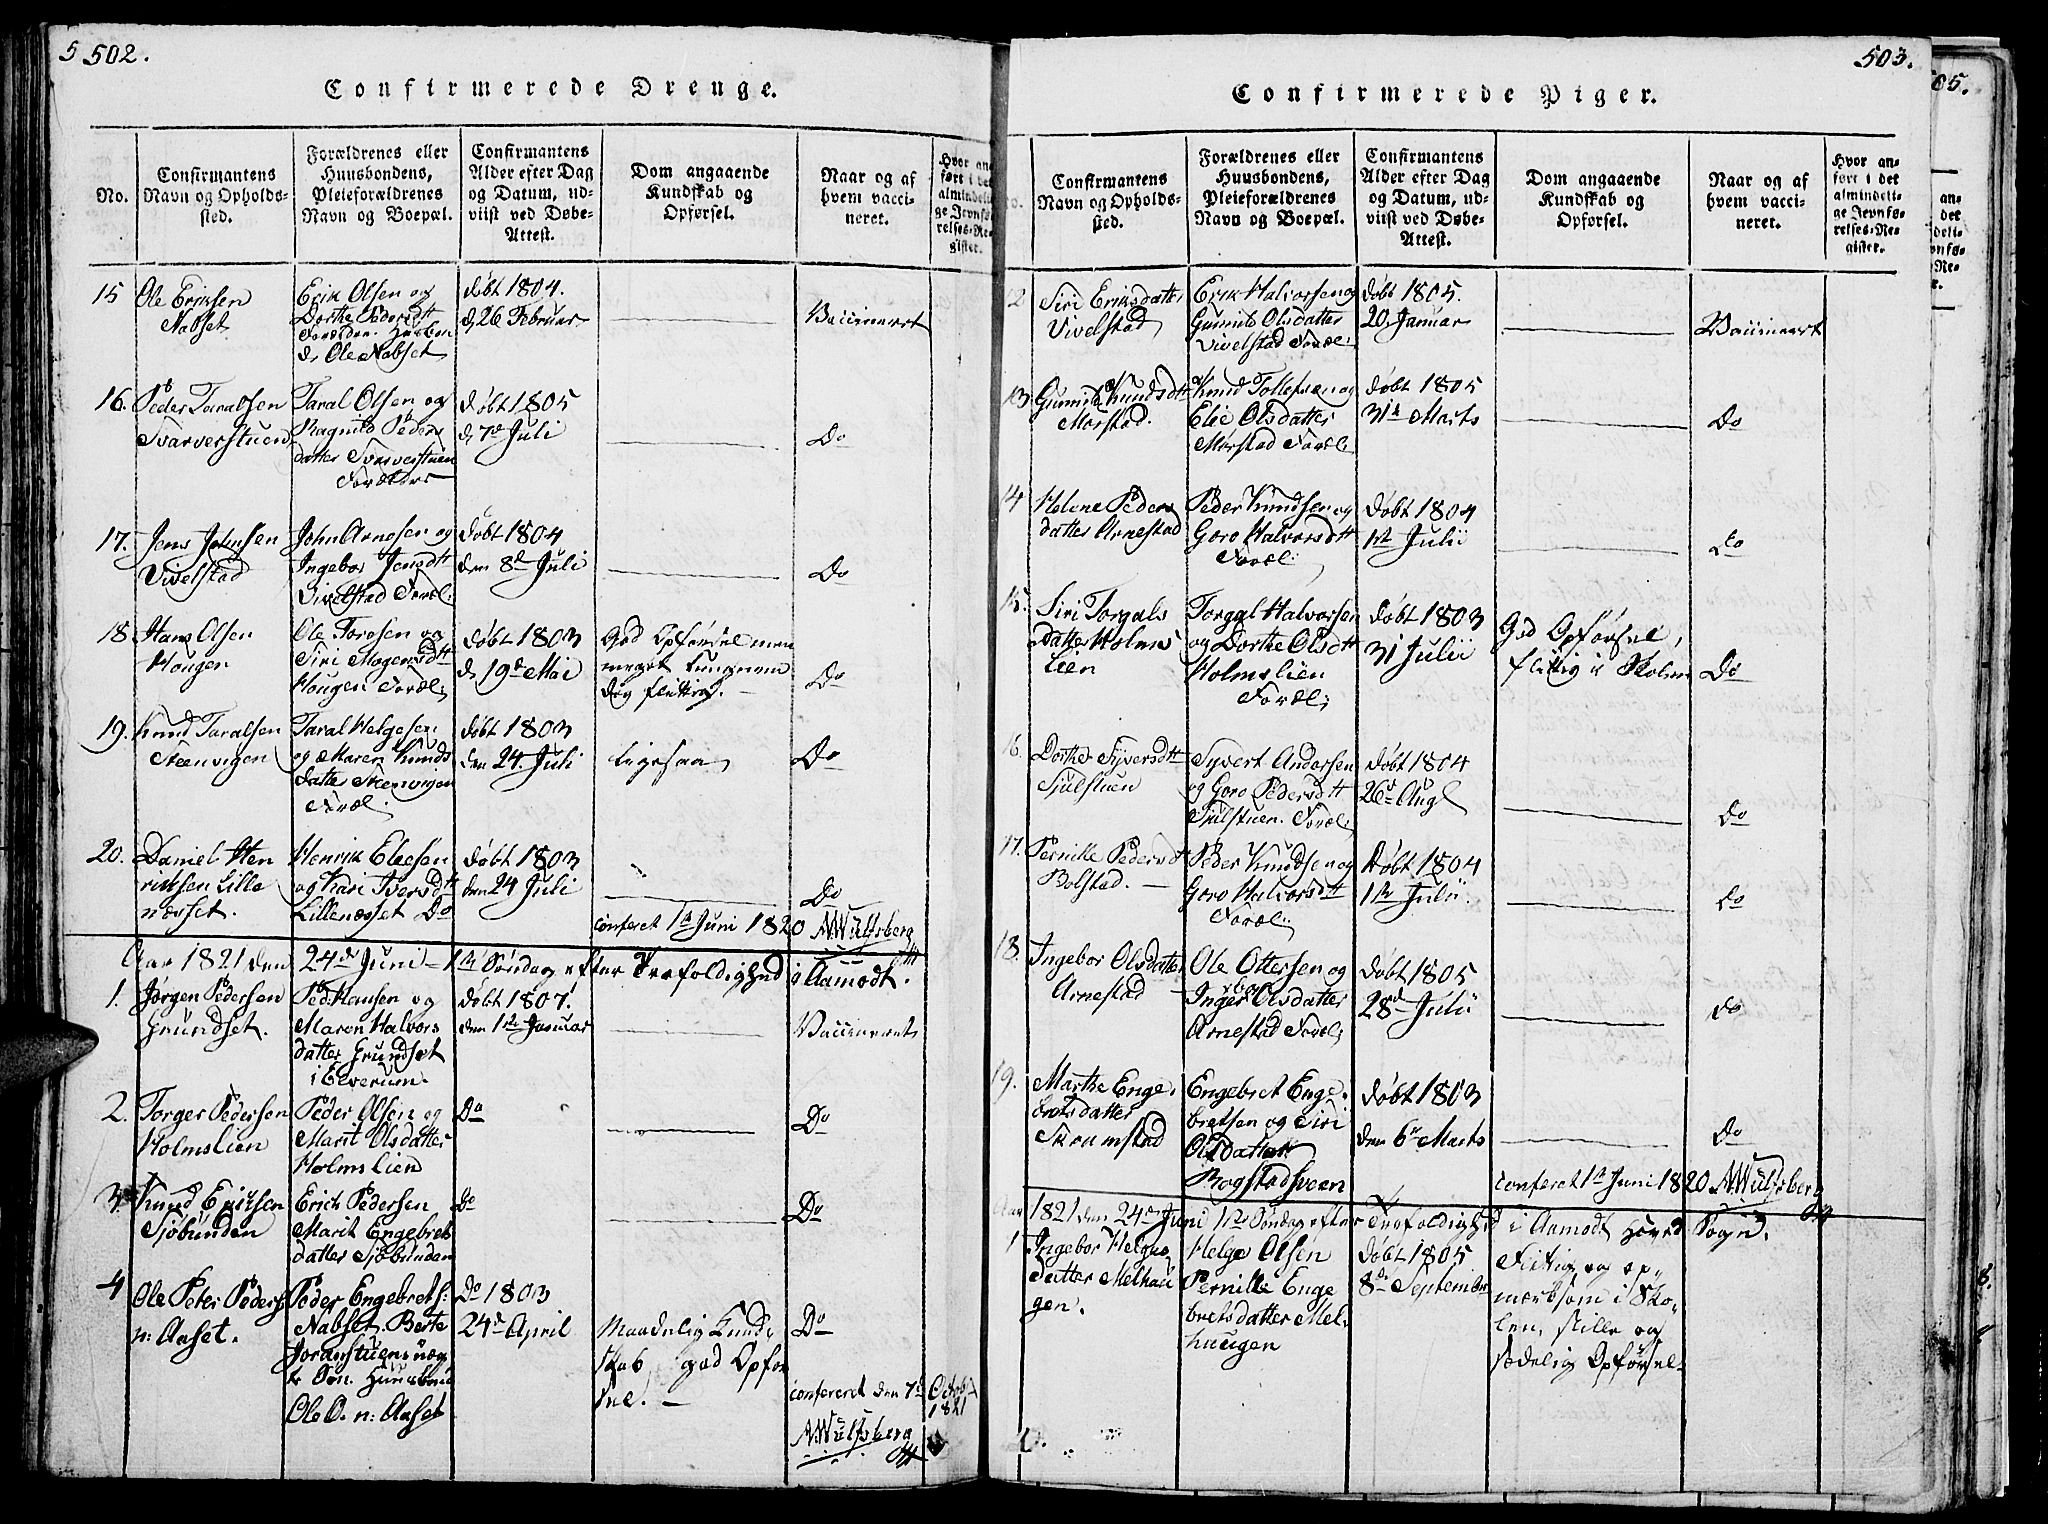 5 502.
Confirmerede Drenge.
No.
Confirmantens
Navn og Opholds-
sted.
Forældrenes eller
Huusbondens,
Pleieforældrenes
Navn og Boepæl.
Confirmantens
Alder efter Dag
og Datum, ud-
viist ved Døbe-
Attest.
Dom angaaende
Kundskab og
Opførsel.
Naar og af
hvem vacci-
neret.
Hvor an-
ført i det
almindeli-
ge Jevnfø-
relses-Re-
gister.
15
Ole Eriksen
Nabset
Erik Olsen og
Dorthe Pedersdtt
Forældre. Husbon
d, Ole Nabset,
døbt 1804.
d, 26 Februar
Vaccineret
16.
Peder Taralsen
Svarverstuen
Taral Olsen og
Ragnild Peders
datter Svarverstuen
Forældre
døbt 1805
d, 7de Juli
Do
17.
Jens Johnsen
Vivelstad
John Arnesen og
Ingebor Jensdtt
Vivelstad Foræl:
døbt 1804
den 8de Juli
Do
18.
Hans Olsen
Hougen
Ole Torgsen og
Siri Mogensdtt
Hougen Foræl;
døbt 1803
d, 19de Mai
God Opførsel men
meget tungnem
dog flittig. —
Do
19.
Knud Taralsen
Steenvigen
Taral Helgesen
og Maren Knuds
datter Steenvigen
Foræl:
døbt 1803
den 24. Juli
Ligesaa
Do
20.
Daniel Hen
riksen Lille
næsset.
Henrik Eleesen
og Kari Iversdtt
Lillenæsset Do
døbt 1803
den 24 Juli
Do
Conferet 1te Juni 1820 A Wulfsberg
Aar 1821 den 24de Juni – 1te Søndag efter Trefoldighed i Aamodt.
1.
Jørgen Pedersen
Grundset.
Ped: Hansen og
Maren Halvors
datter Grundset
i Elverum.
Døbt 1807.
den 1ste Januar
Vaccineret
2.
Torger Pedersen
Holmslien
Peder Olsen og
Marit Olsdatter
Holmslien
Do
Do
3.
Knud Ericksen
Sjøbunden
Erich Pedersen
Marit Engebrets
datter Sjøbunden
Do
Do
4
Ole Peter Peders
n: Aaset.
Peder Engebrets:
Nabset. Berte
Joranstuens uæg
te Søn. Huusbond
Ole O. n: Aaset
Do 1803
24de April
Maadelig Kund,
skab god Opfør
sel. —
Do
Confereret den 7de Octobr
1821
A Wulfsberg
503.
Confirmerede Piger.
Confirmantens
Navn og Opholds-
sted.
Forældrenes eller
Huusbondens,
Pleieforældrenes
Navn og Boepæl.
Confirmantens
Alder efter Dag
og Datum, ud-
viist ved Døbe-
Attest.
Dom angaaende
Kundskab og
Opførsel.
Naar og af
hvem vacci-
neret.
Hvor an-
ført i det
almindeli-
ge Jevnfø-
relses-Re-
gister.
12
Siri Eriksdatter
Vivelstad
Erik Halvorsen og
Gunild Olsdatter
Vivelstad Foræl:
døbt 1805.
20 Januar
Vaccineret
13
Gunild Knudsdtt
Morstad.
Knud Tollefsen og
Elie Olsdatter
Morstad Foræl:
døbt 1805
31te Marts
Do
14
Helene Peders
datter Arnestad
Peder Knudsen og
Goro Halvorsdtt
Foræl:
Døbt 1804
1ste Julii
Do
15.
Siri Torgals
datter Holms
lien
Torgal Halvorsen
og Dorthe Olsdtt
Holmslien
Foræl;
døbt 1803
31 Julii
God Opførsel,
flittig i Skolen
Do
16.
Dorthe Syversdtt
Sjulstuen
Syvert Andersen
og Goro Pedersdtt
Sjulstuen. Foræl:
Døbt 1804
26de Aug
Do
17.
Pernille Pedersdtt
Bolstad. —
Peder Knudsen og
Goro Halvorsdtt
Foræl:
Døbt 1804
1ste Julii
Do
18.
Ingebor Olsdatter
Arnestad
Ole Ottersen og
Inger Olsdatter
Arnestad Foræl:
døbt 1805
28de Julii
Do
19.
Marthe Enge,
bretsdatter
Skrumstad
Engebret Enge,
bretsen og Siri
Olsdatter
Rogstadsveen
døbt 1803
den 6te Marts
Do
Conferet 1te Juni 1820 A Wulfsberg
Aar 1821 den 24de Juni 1ste Søndag efter Trefoldighed i Aamodt Hoved Sogn.
1
Ingebor Helges
datter Melhau
gen.
Helge Olsen
Pernille Enge
bretsdatter Mel,
haugen
Døbt 1805
8de September
Flittig og op,
mærksom i Sko,
len, stille og
sædelig Opførsel.
505.